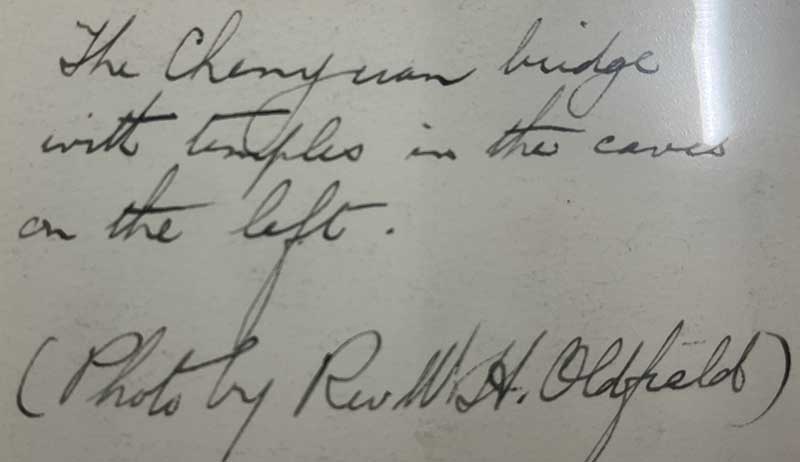 The Chenyuan bridge
with temples in the caves
on the left.
(Photo by Rev W. H. Oldfield)